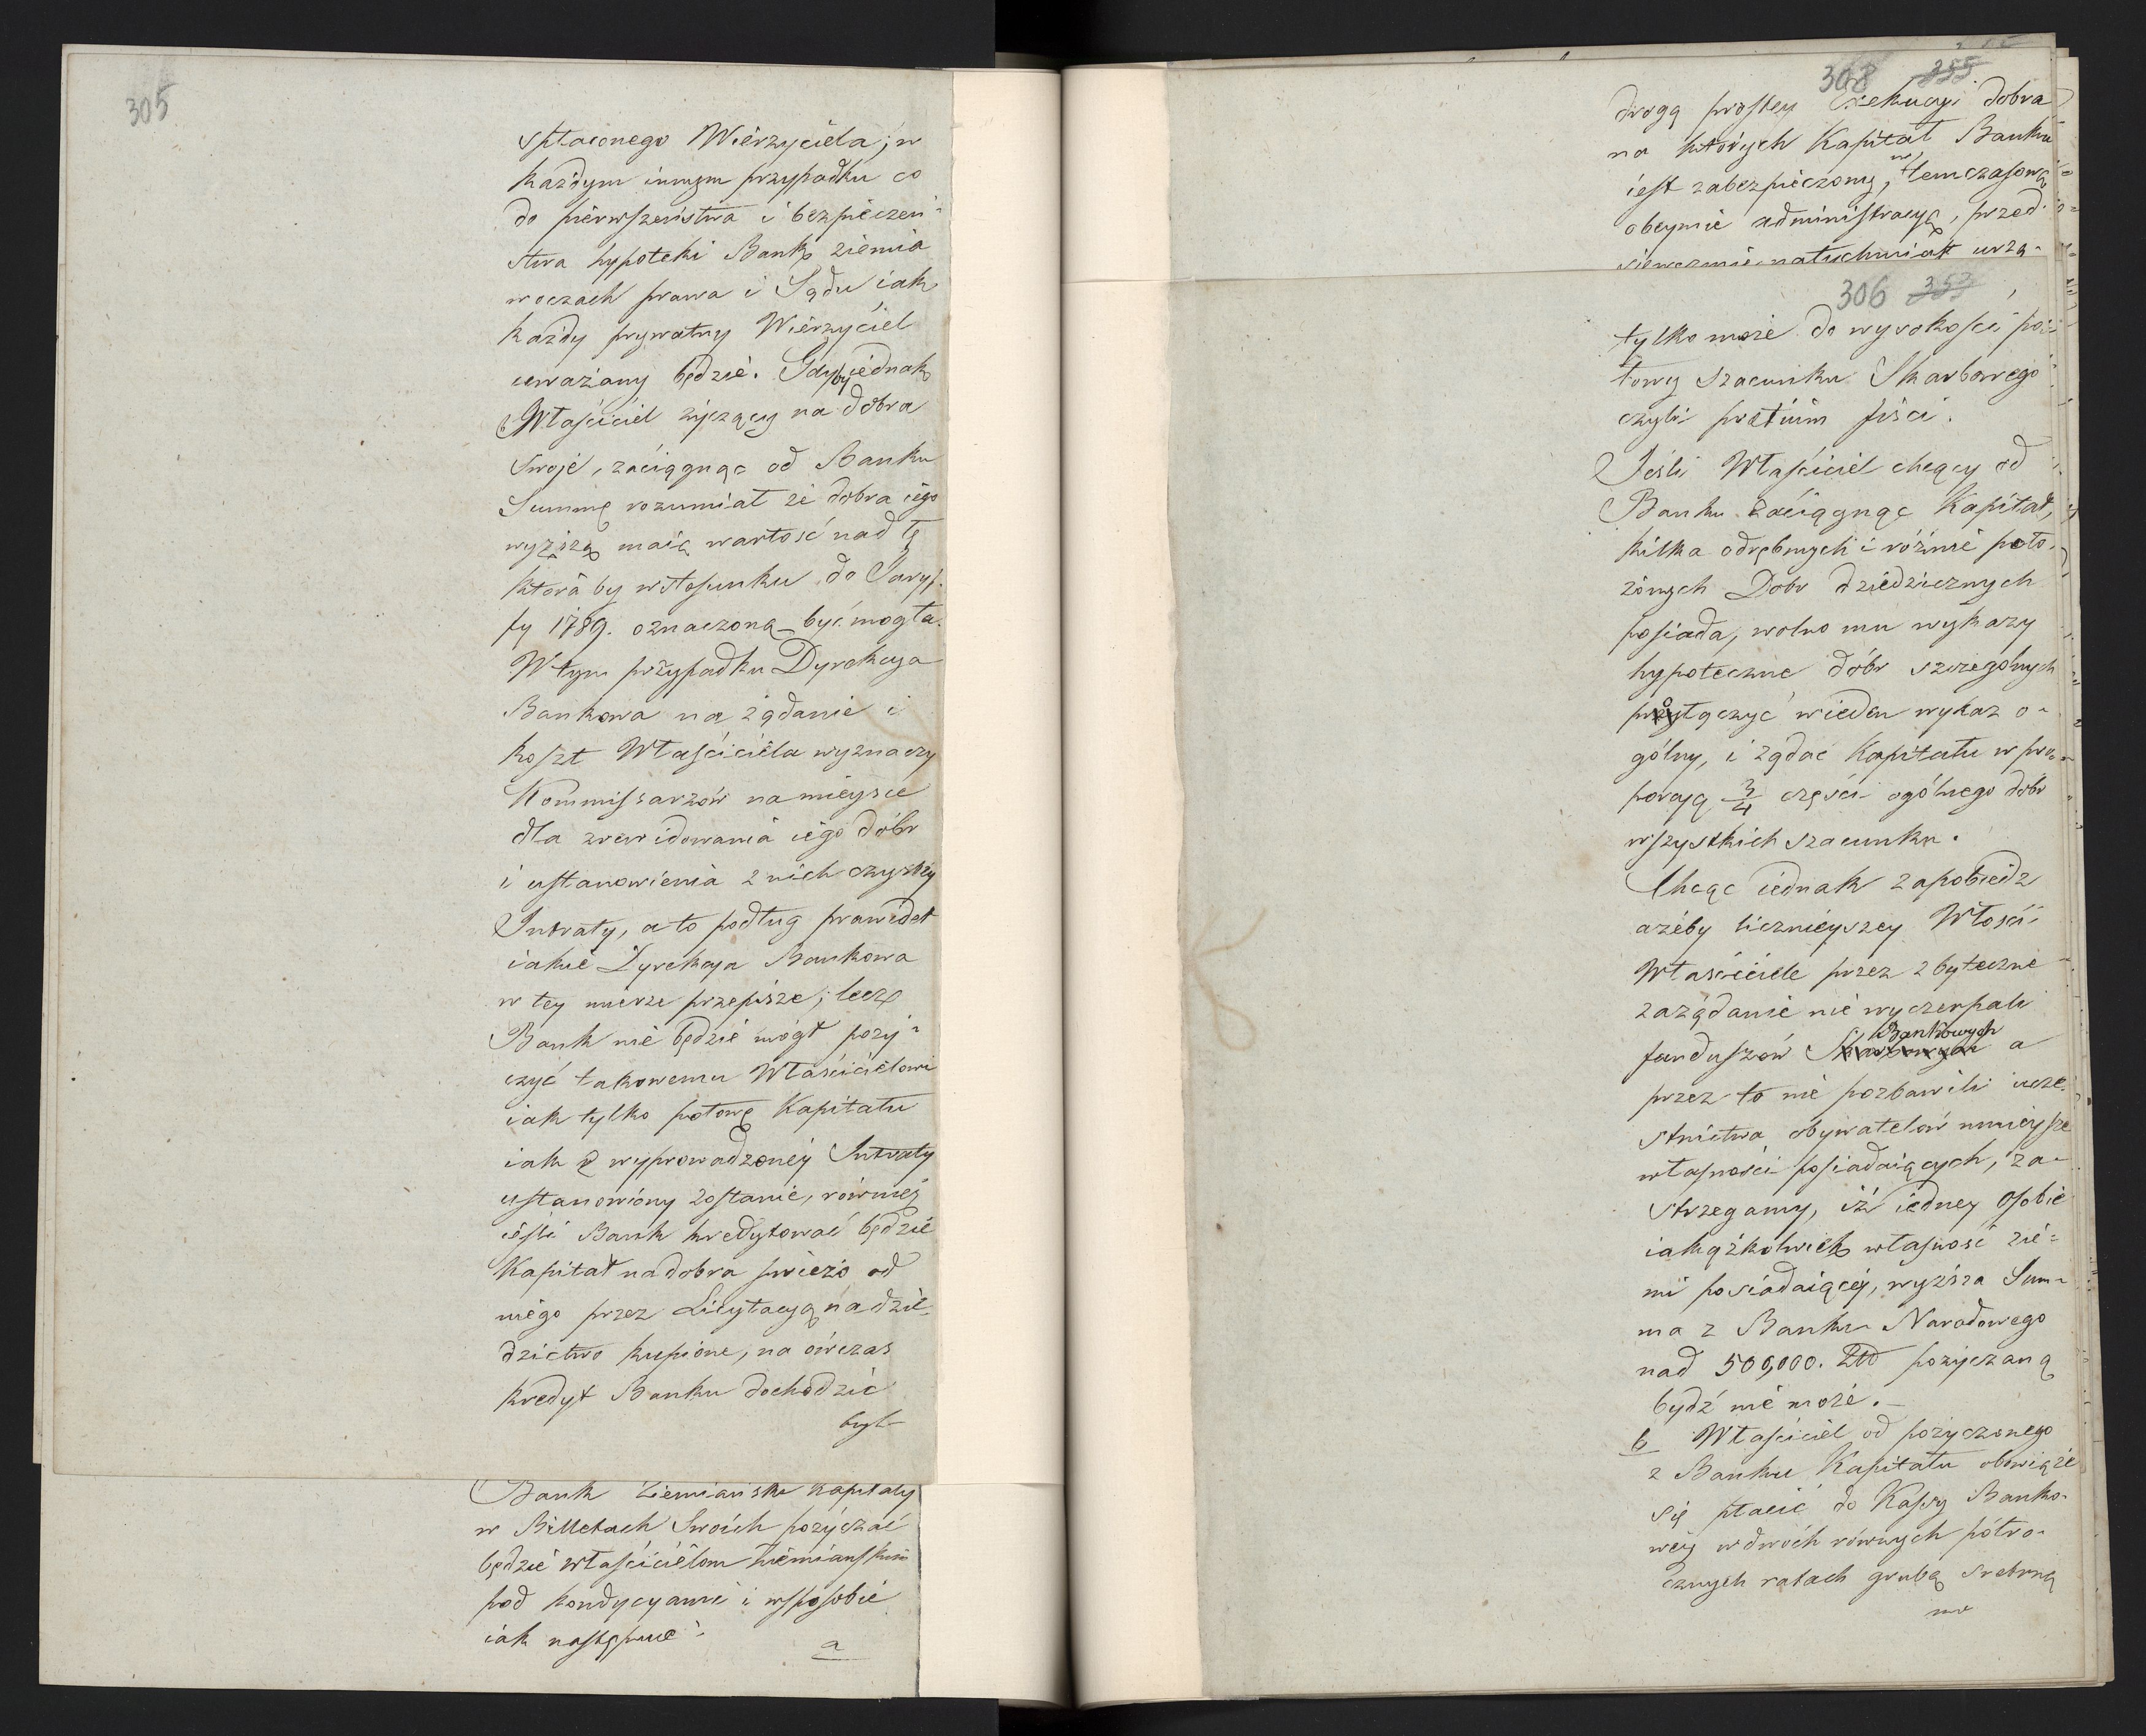 305
spłaconego Wierzyciela; w
każdym innym przypadku co
do pierwszeństwa i bezpieczeń-
stwa hypoteki Bank ziemia
w oczach prawa i Sądu iak
każdy prywatny Wierzyciel
uważany będzie. Gdyby iednak
Właściciel życzący na dobra
swoje, zaciągnąc od Banku
Summę rozumiał że dobra iego
wyższą maią wartość nad tę
którą by w stosunku do Taryf-
fy 1789. oznaczoną być mogła.
W tym przypadku Dyrekcya
Bankowa na żądanie i
koszt Właściciela wyznaczy
Kommissarzów na mieysce
dla zrewidowania iego dóbr
i ustanowienia z nich czystey
Intraty, a to podług prawideł
iakie Dyrekcya Bankowa
w tey mierze przepisze; lecz
Bank nie będzie mógł poży-
czyć takowemu Właścicielowi
iak tylko połowę Kapitału
iak z wyprowadzoney Intraty
ustanowiony zostanie, również
ieśli Bank kredytować będzie
Kapitał na dobra świeżo od
niego przez Licytacyą na dzie-
dzictwo kupione, na ówczas
kredyt Banku dochodzić
tyl-
Bank Ziemianski Kapitały
w Billetach Swoich pożyczać
będzie właścicielom Ziemianskim
pod kondycyami i w sposobie
iak następuie:
a
308 355
drogą prostey Exekucyi dobra
na których Kapitał Banku
iest zabezpieczony, w temczasową
obeymie administracyą, przed-
siewezmie natychmiast urzą-
306 353
tylko może do wysokości po-
łowy szacunku Skarbowego
czyli pretium fisci.
Jeśli Właściciel chcący od
Banku zaciągnąc Kapitał,
kilka odrębnych i różnie poło-
żonych Dobr dziedzicznych
posiada, wolno mu wykazy
hypoteczne dóbr szczegolnych
połączyć w ieden wykaz o-
gólny, i żądać Kapitału w pro-
porcyą 3/4 części ogólnego dobr
wszystkich szacunku.
Chcąc iednak zapobiedz
ażeby licznieyszey Włości
Właściciele przez zbyteczne
zażądanie nie wyczerpali
funduszów Skarbowych Bankowych a
przez to nie pozbawili ucze-
stnictwa obywatelów mnieysze
własności posiadaiących, za-
strzegamy, iż iedney osobie
iakążkolwiek własność zie-
mi posiadaiącey, wyższa Sum-
ma z Banku Narodowego
nad 500,000. Złd pożyczaną
bydź nie może.
b Właściciel od pożyczonego
z Banku Kapitału obowiąże
się płacić do Kassy Banko-
wey w dwóch równych półro-
cznych ratach grubą srebrną
mo